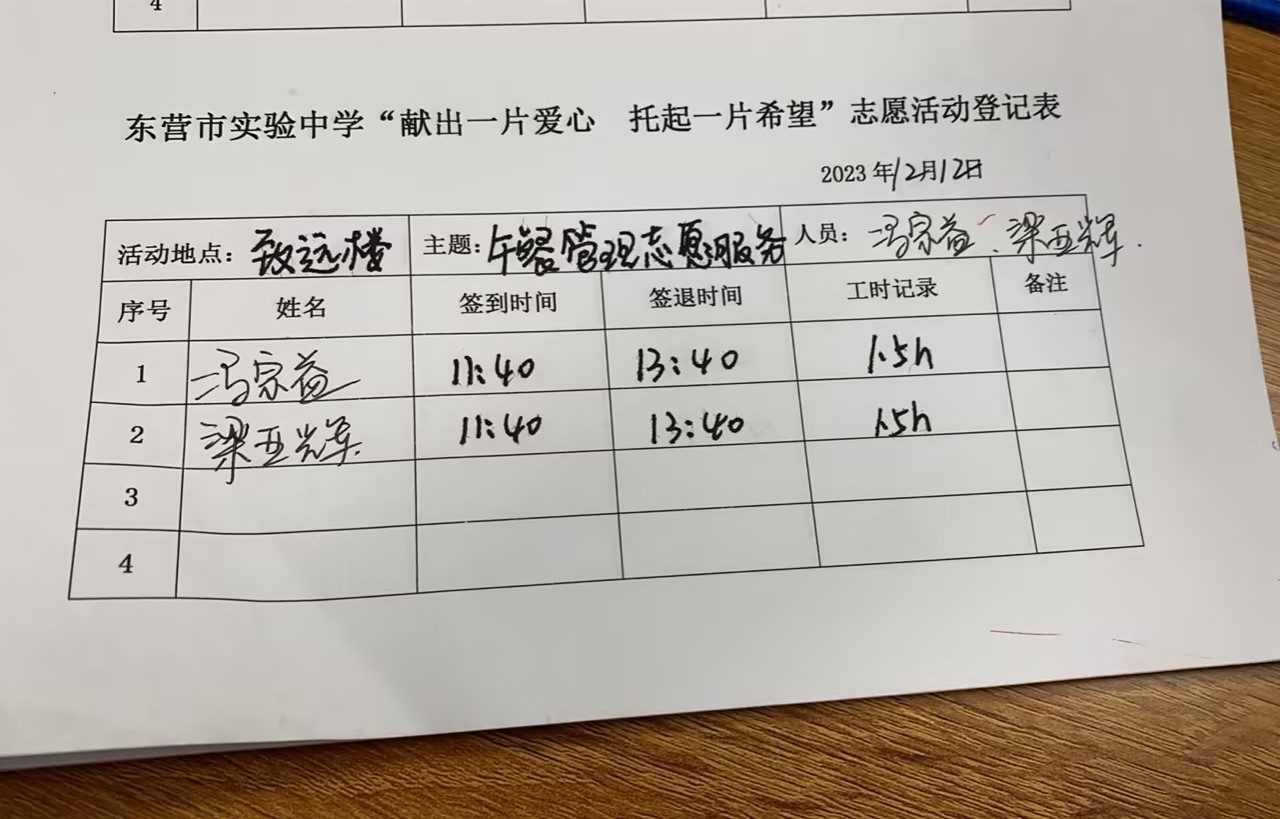 4
东营市实验中学“献出一片爱心 托起一片希望”志愿活动登记表
2023 年12月12日
活动地点：致远楼 主题：午餐管理志愿服务 人员：冯宗益、梁亚辉.
序号 姓名 签到时间 签退时间 工时记录 备注
1 冯宗益 11:40 13:40 1.5h
2 梁亚辉 11:40 13:40 1.5h
3
4